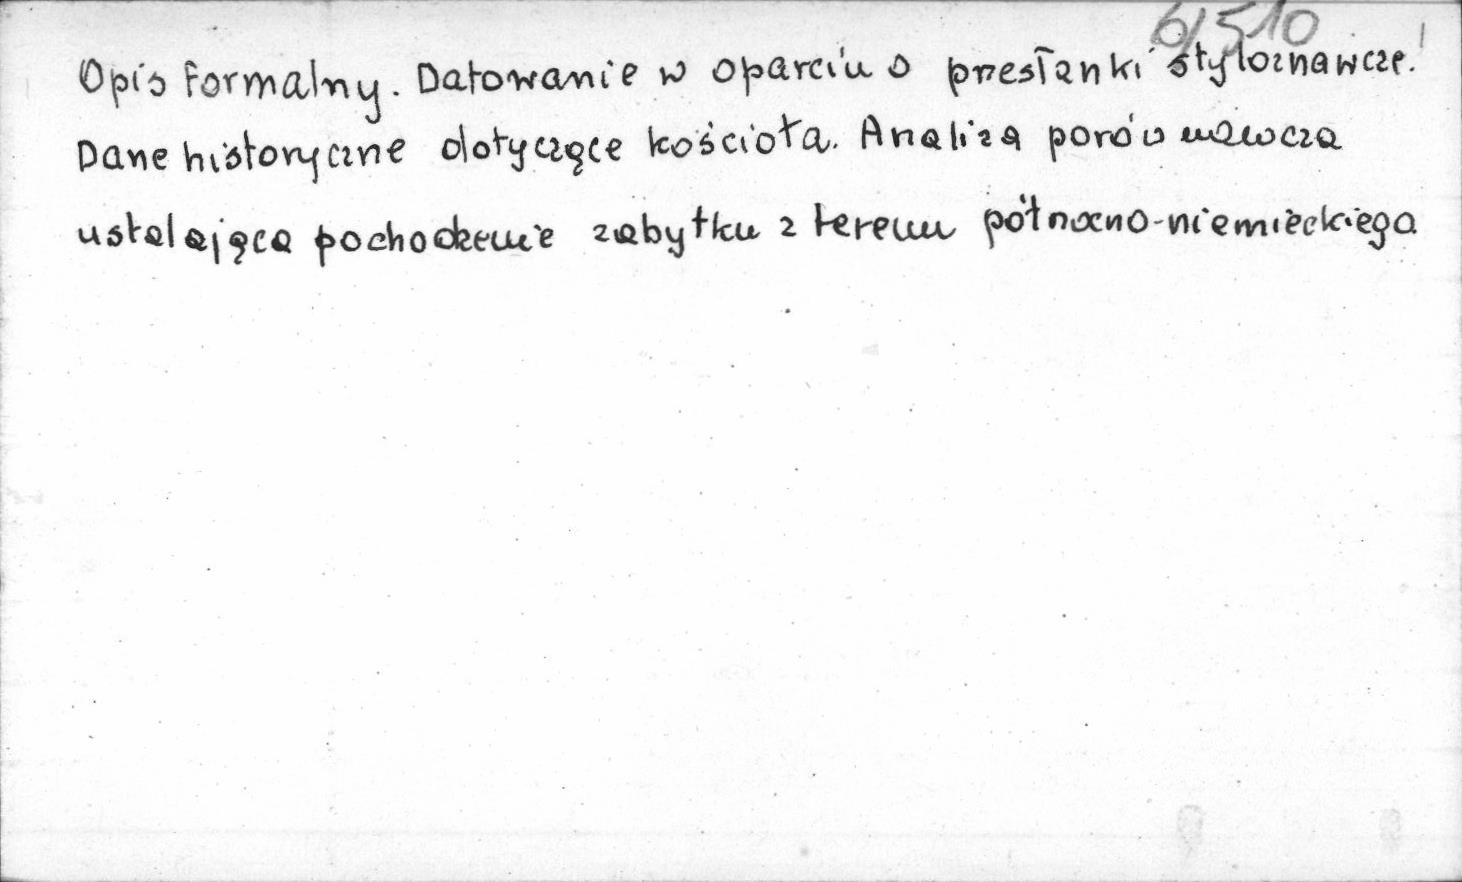 6/510
Opis formalny. Datowanie w oparciu o przesłanki styloznawcze.
Dane historyczne dotyczące kościoła. Analiza porównawcza
ustalająca pochodzenie zabytku z terenu północno-niemieckiego